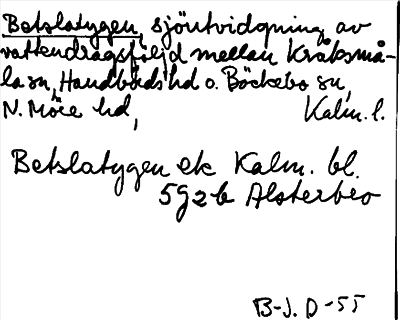 Betslatygen, sjöutvidgning av
vattendragsföljd mellan Kråksmå-
la sn, Handbörds hd o. Böckebo sn,
N. Möre hd, Kalm. l.
Betslatygen ek Kalm. bl.
5G2b Alsterbro
B-J. D -55